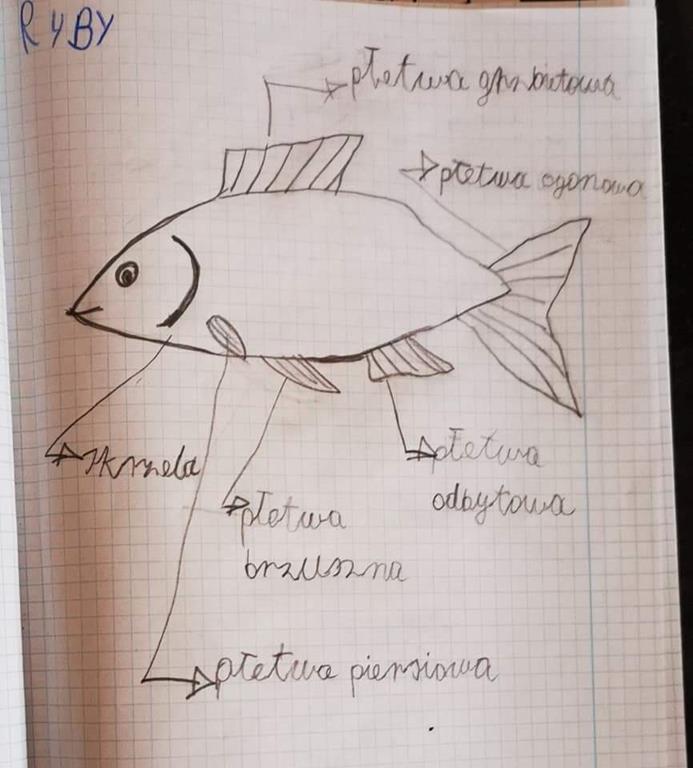 RYBY
płetwa grzbietowa
płetwa ogonowa
skrzela
płetwa
odbytowa
płetwa
brzuszna
płetwa piersiowa